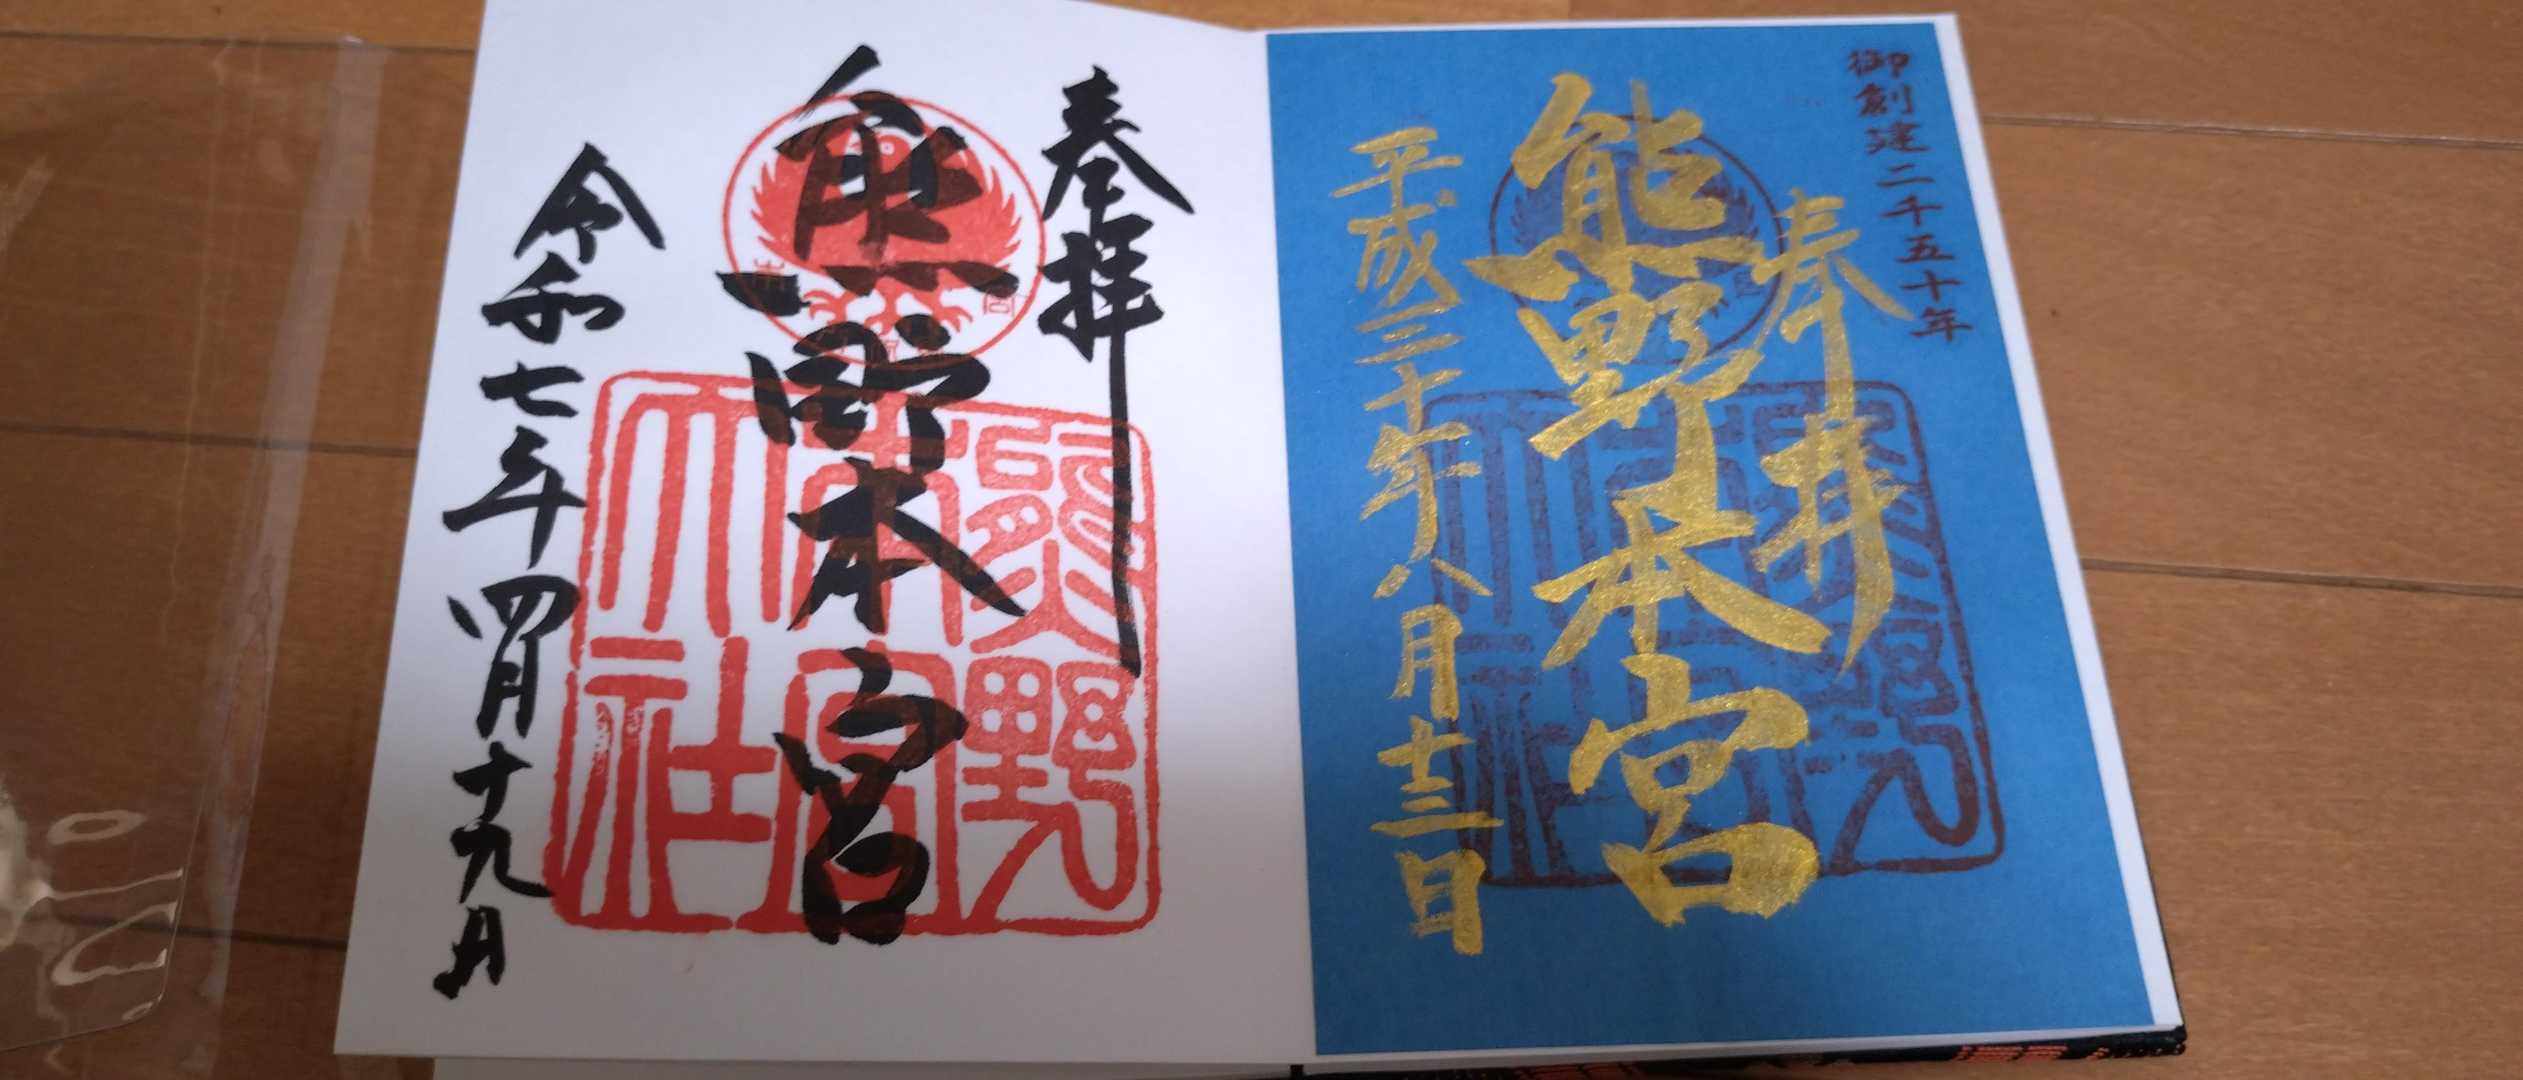 御創建二千五十年
奉拝
熊野本宮
平成三十年八月十三日
奉拝
熊野本宮
令和七年四月十九日
熊野
本宮
大社